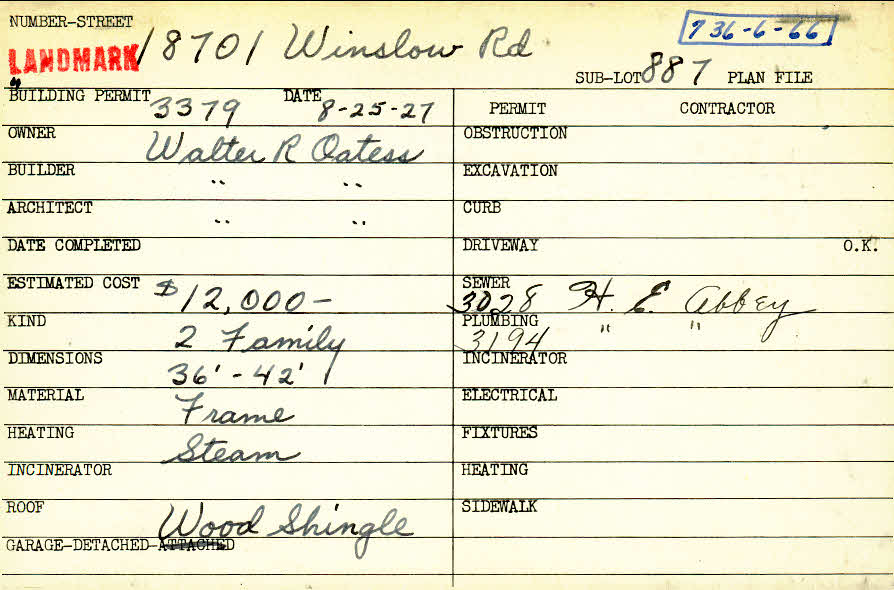 NUMBER-STREET 18701 Winslow Rd 736-6-66
LANDMARK SUB-LOT 887 PLAN FILE
BUILDING PERMIT 3379 DATE 8-25-27 PERMIT CONTRACTOR
OWNER Walter R Oatess OBSTRUCTION
BUILDER " " EXCAVATION
ARCHITECT " " CURB
DATE COMPLETED DRIVEWAY O.K.
ESTIMATED COST $12,000- SEWER 3028 H. E. Abbey
KIND 2 Family PLUMBING 3194 " "
DIMENSIONS 36' - 42' INCINERATOR
MATERIAL Frame ELECTRICAL
HEATING Steam FIXTURES
INCINERATOR HEATING
ROOF Wood Shingle SIDEWALK
GARAGE-DETACHED-ATTACHED